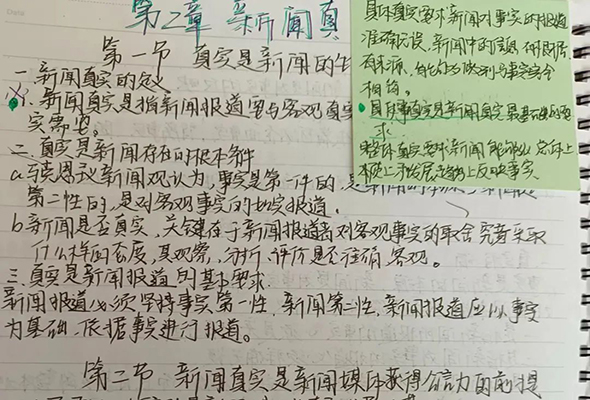 第2章 新闻真
第一节 真实是新闻的生
一.新闻真实的定义
1.新闻真实是指新闻报道需与客观真实
实需要。
二.真实是新闻存在的根本条件
a.马克思主义新闻观认为,事实是第一性的,是新闻的本源,新闻是
第二性的,是对客观事实的如实报道。
b.新闻是否真实,关键在于新闻报道者对客观事实的取舍究竟采取
什么样的态度,其观察,分析,评价是否准确、客观。
三.真实是新闻报道的基本要求
新闻报道必须坚持事实第一性,新闻第二性,新闻报道应以事实
为基础,依据事实进行报道。
第二节 新闻真实是新闻媒体获得公信力的前提
具体真实要求新闻对事实的报道
准确无误,新闻中的信息
有来源,
相符。
具体真实是新闻真实最基础的要
求
整体真实要求新闻能够从总体上
本质上和发展趋势上反映事实